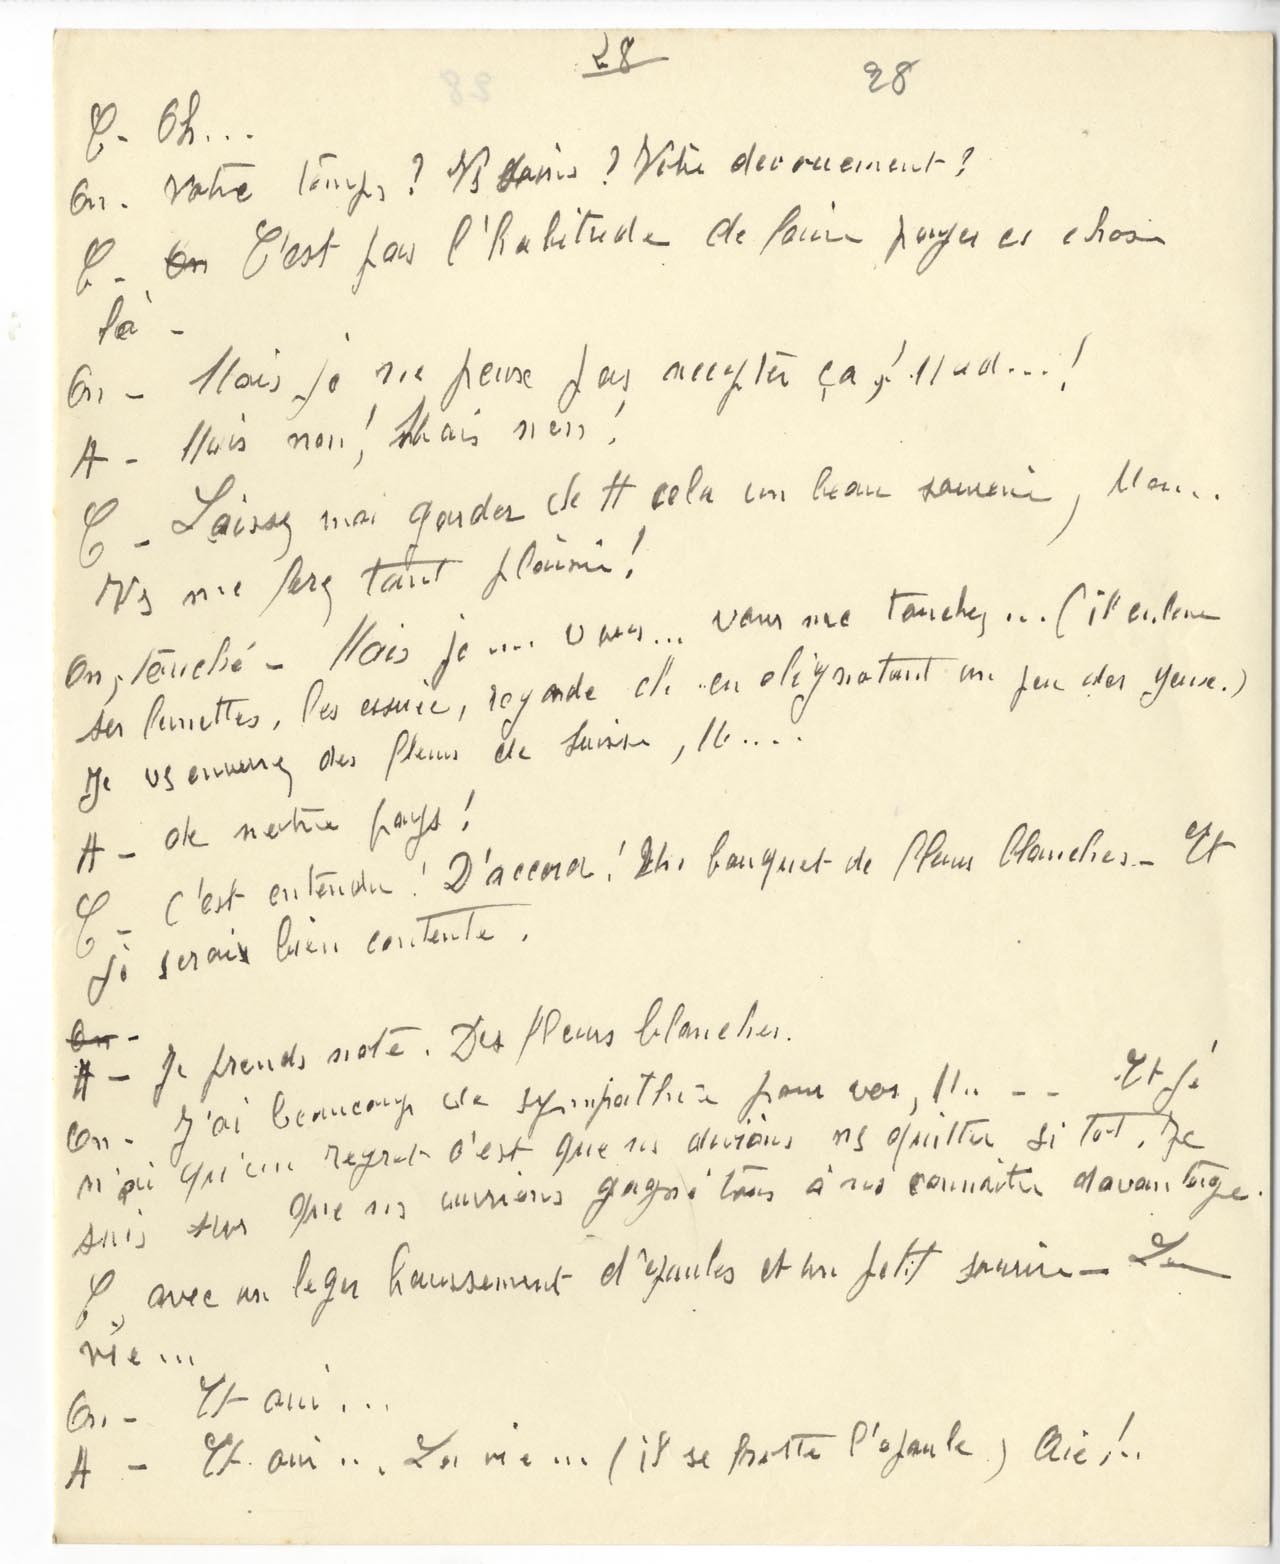 28 28
C - Oh...
On - Votre temps? Vs soins? Votre devouement?
C - On C'est pas l'habitude de faire payer ces chose
là -
On - Mais je ne peux pas accepter ça! Mad...!
A - Mais non! Mais non!
C - Laissez moi garder de cela un beau souvenir, Mon...
Vs me ferez tant plaisir!
On, touché - Mais je .... vous... vous me touchez... (il enleve
ses lunettes, les essuie, regarde en clignotant un peu des yeux.)
Je vs enverrez des fleurs de Suisse, M....
A - de notre pays!
C - C'est entendu! D'accord! Un bouquet de fleurs blanches - Et
je serais bien contente.
On -
A - Je prends note. Des fleurs blanches.
On - J'ai beaucoup de sympathie pour vos, M.. - - Et je
n'ai qu'un regret c'est que ns devions ns quitter si tot. Je
suis sur que ns aurions gagné tous à ns connaitre davantage.
C, avec un leger haussement d'epaules et un petit sourire - La
vie...
On - Et oui...
A - Et oui... La vie... (il se frotte l'epaule) Aie!..